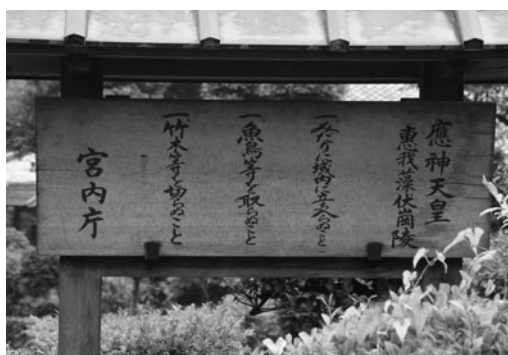 應神天皇
惠我藻伏崗陵
一、みだりに域内に立入らぬこと
一、魚鳥等を取らぬこと
一、竹木等を切らぬこと
宮内庁